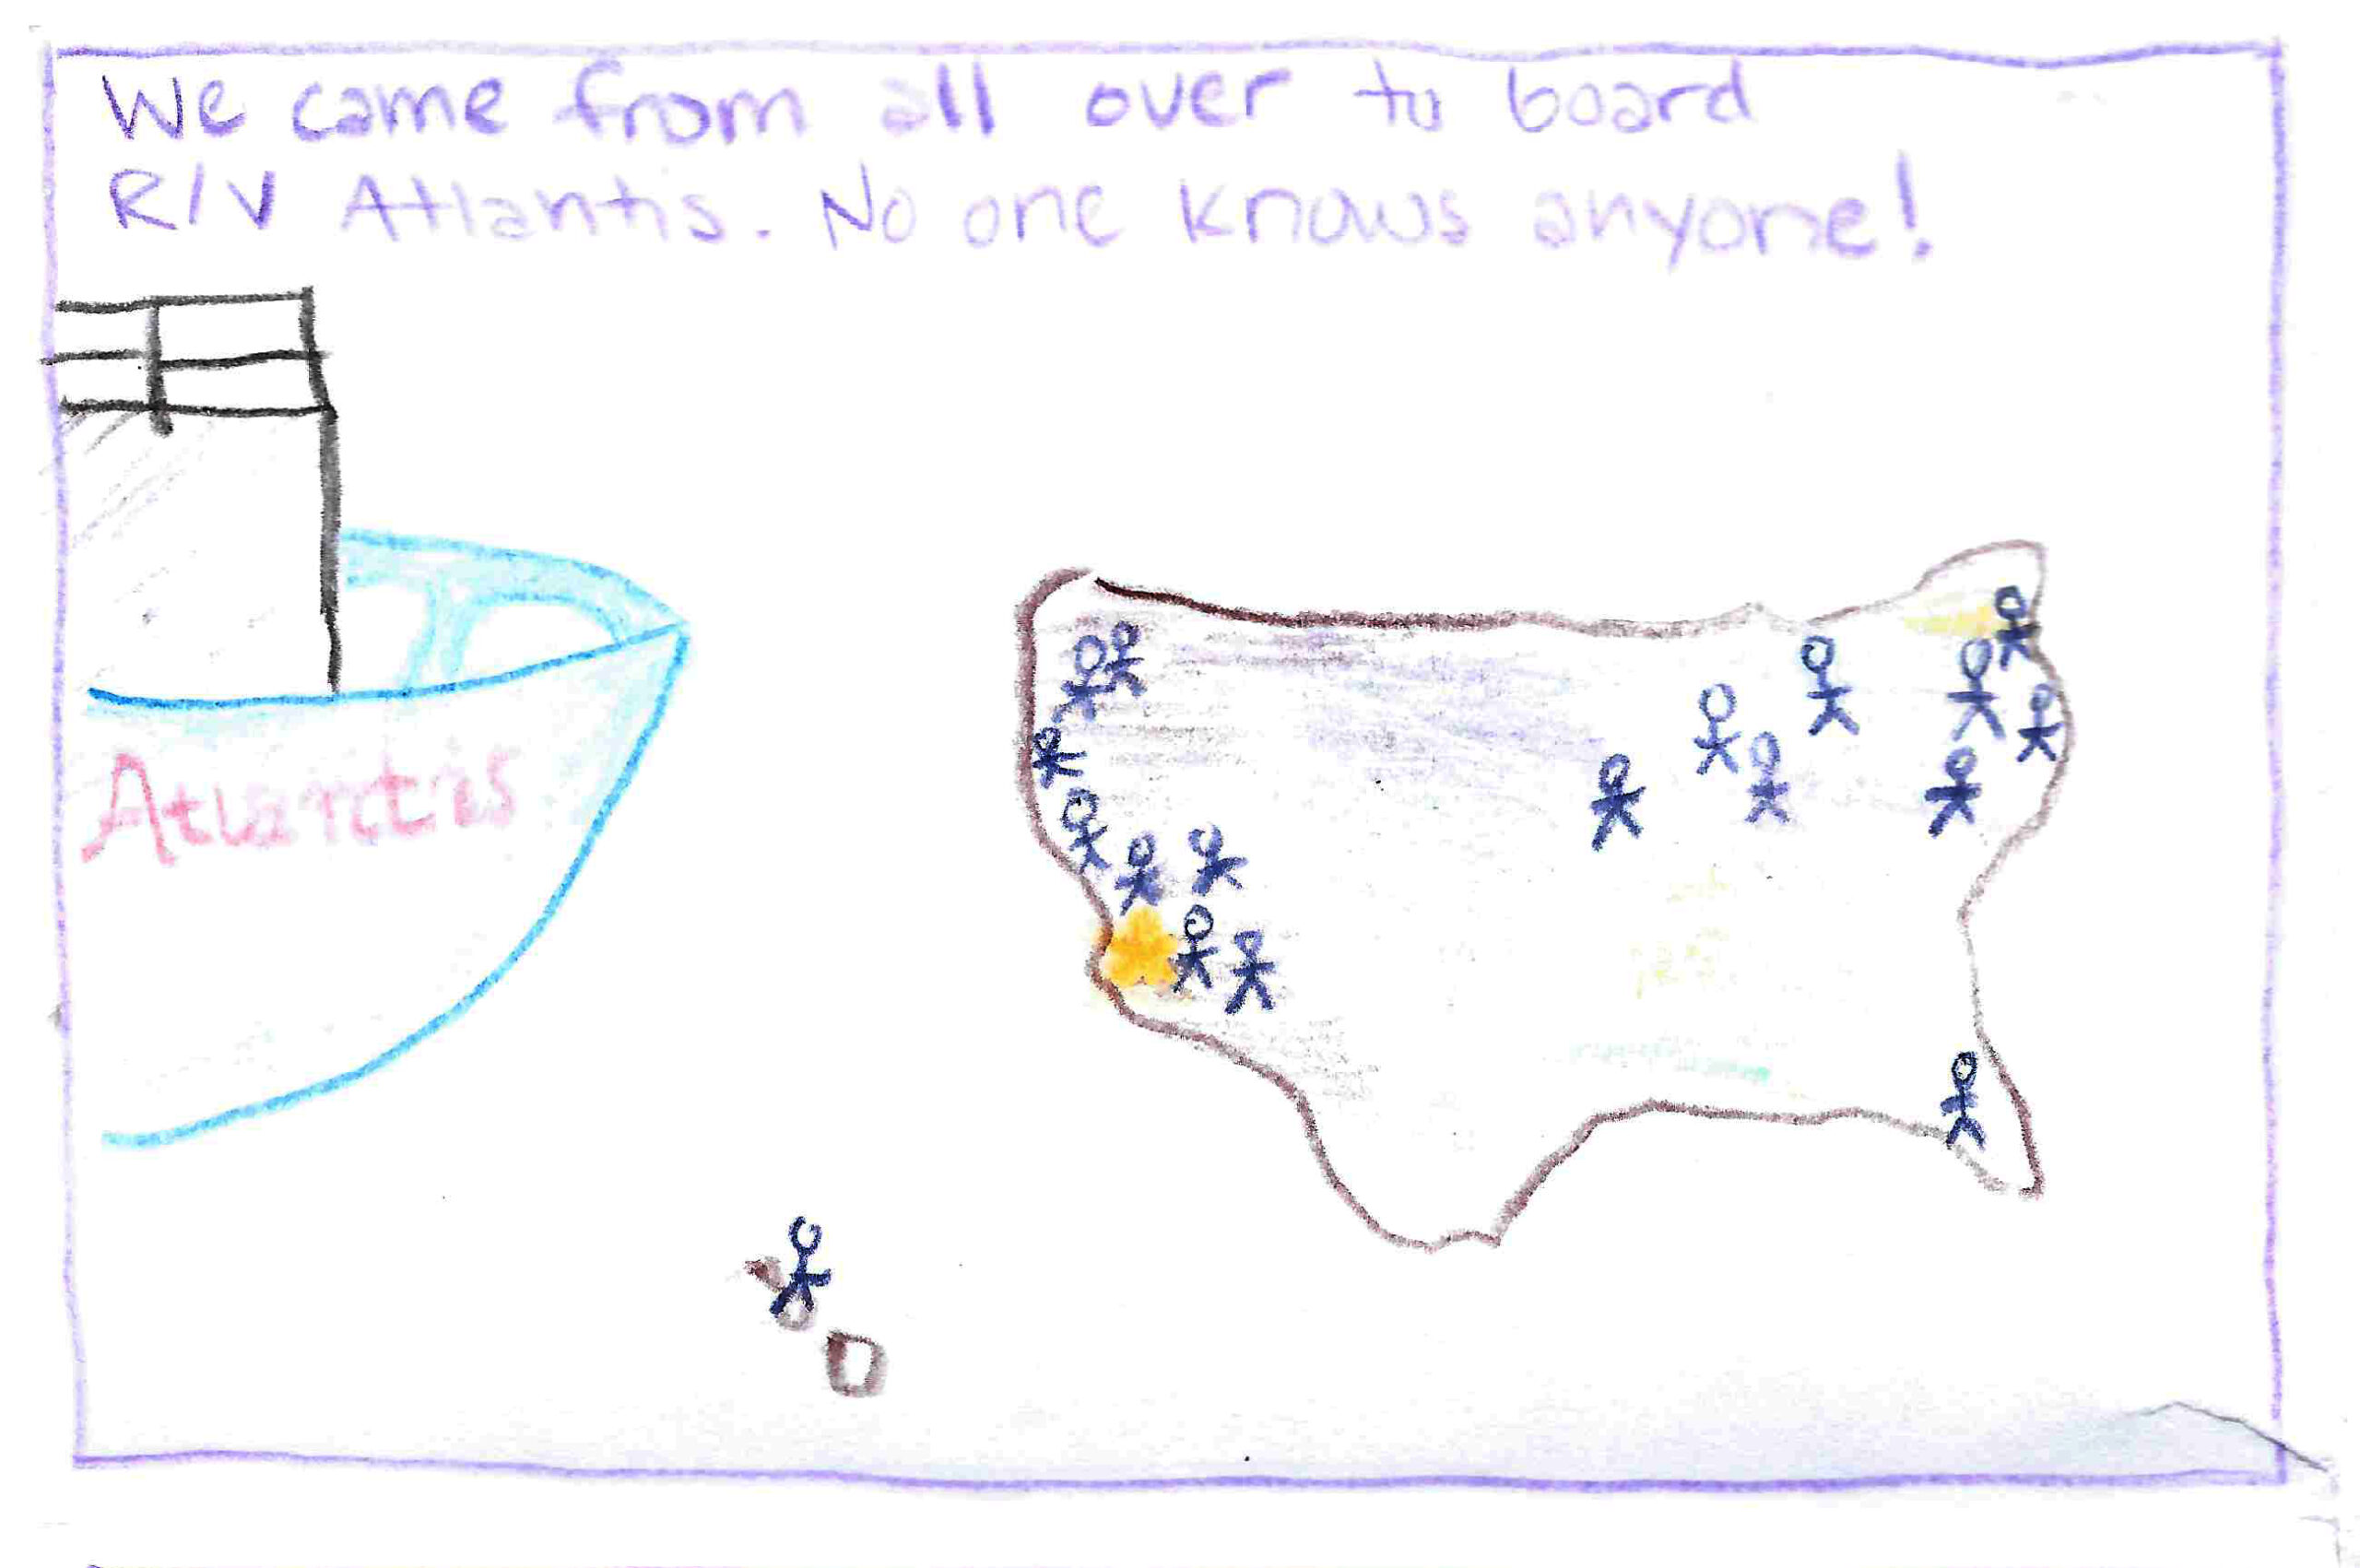 We came from all over to board
R/V Atlantis. No one knows anyone!
Atlantis